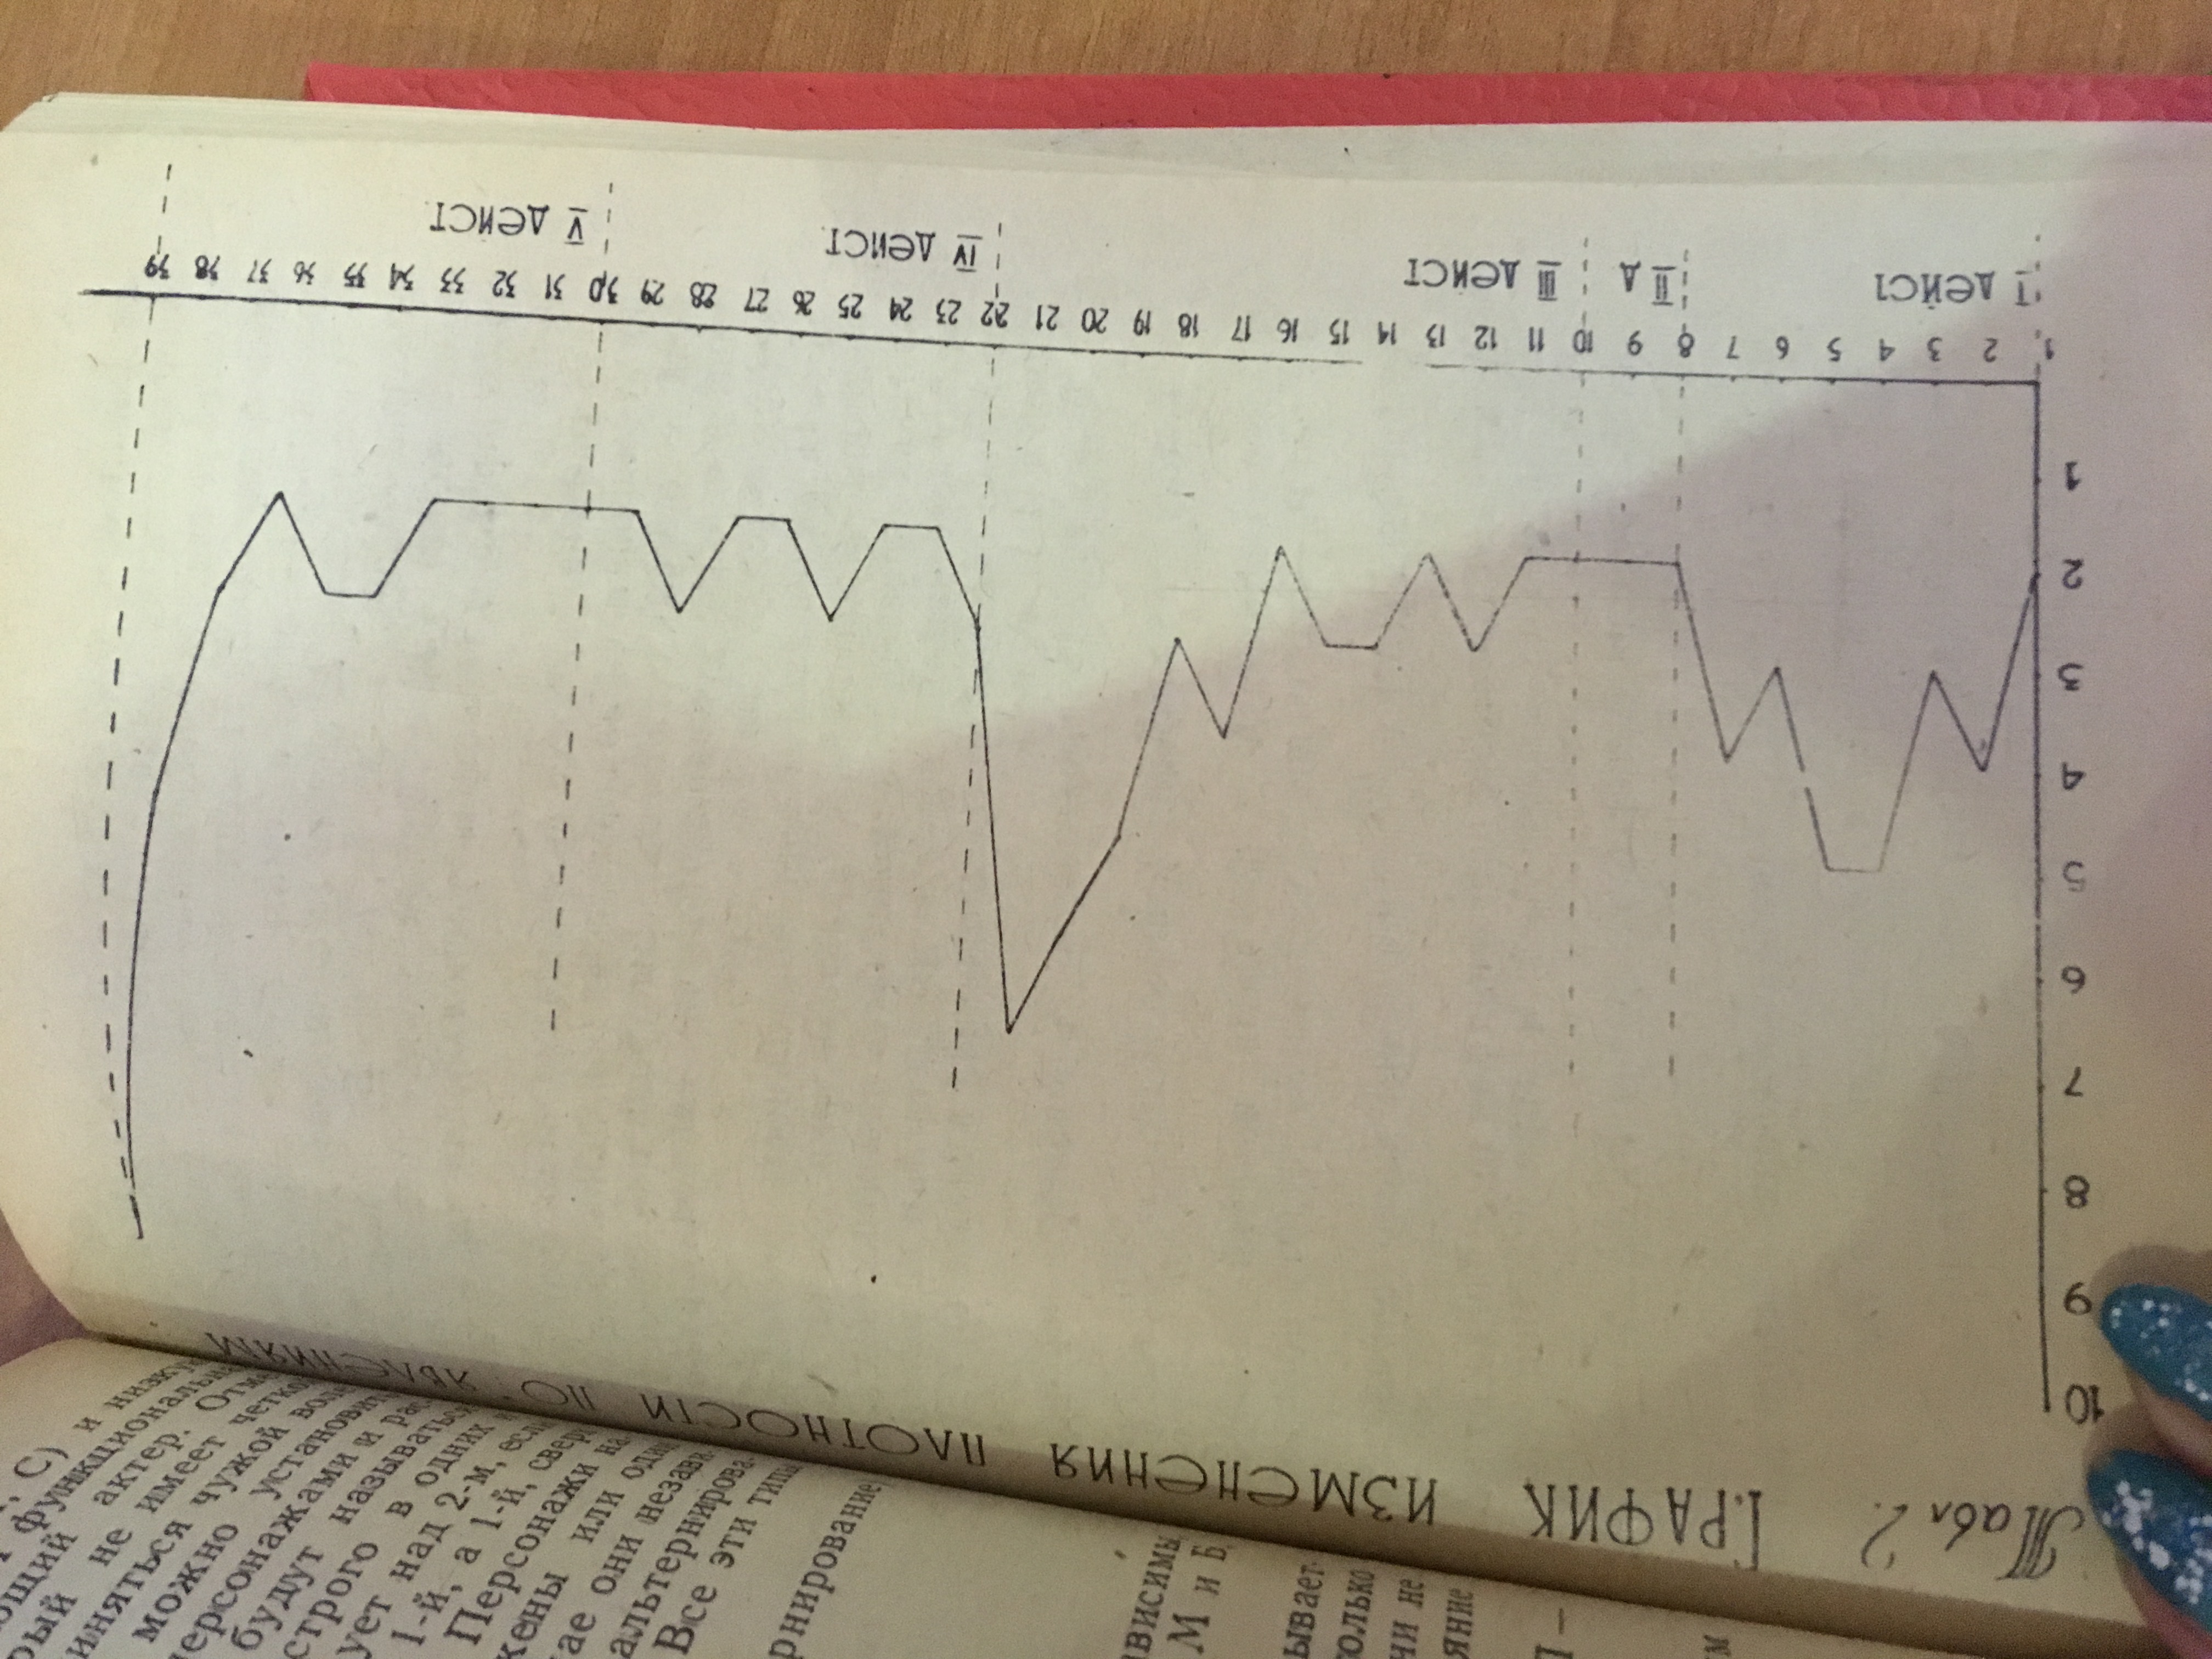 С) и низкую
не имеет четкой
чужой
можно установить
персонажами и
будут называться
строго в одних и
ует над 2-м, если
1-й, а 1-й, сверх
Персонажи на-
жены или
ае они незави-
альтернирова-
Все эти типы
рнирование
ависимы
М и Б,
ывает-
олько
чи не
яние
Табл 2. ГРАФИК ИЗМЕНЕНИЯ ПЛОТНОСТИ ПО ЯВЛЕНИЯМ
10
9
8
7
6
5
4
3
2
1
1 2 3 4 5 6 7 8 9 10 11 12 13 14 15 16 17 18 19 20 21 22 23 24 25 26 27 28 29 30 31 32 33 34 35 36 37 38 39
I ДЕЙСТ II Д III ДЕЙСТ IV ДЕЙСТ. V ДЕЙСТ.